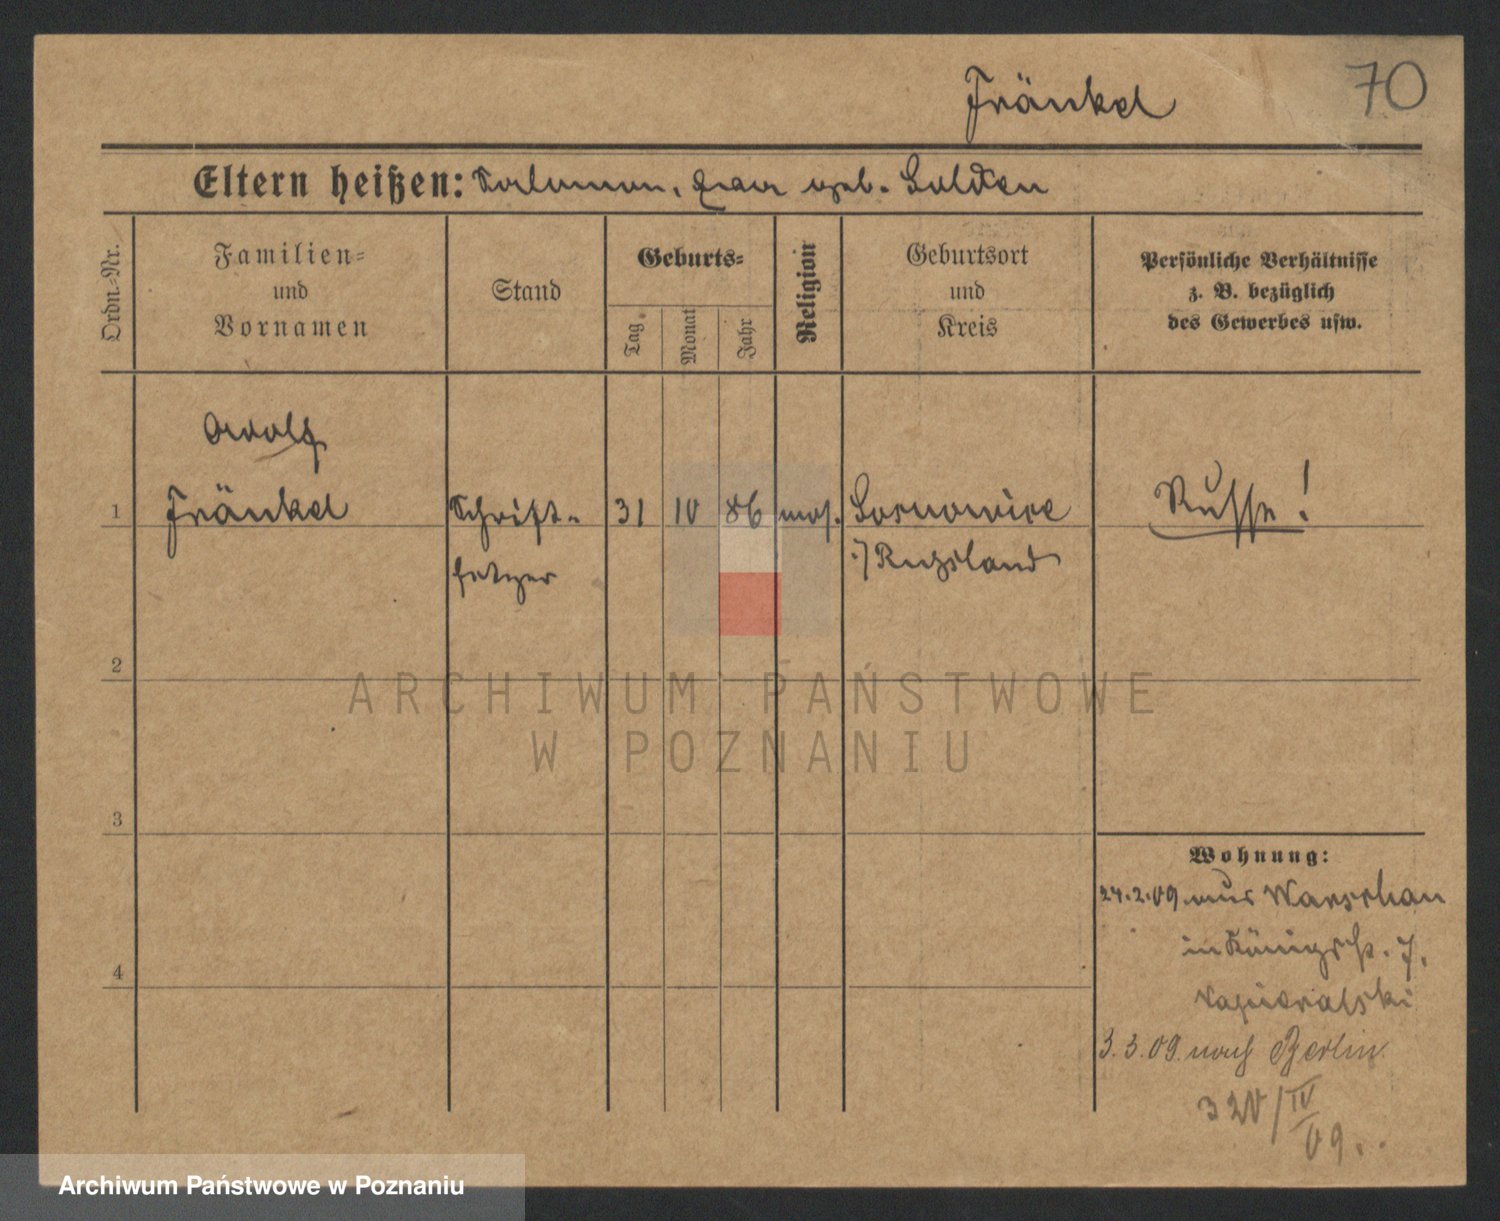 70
Fränkel
Eltern heißen: Salomon, geb. Golden
Ordn.-Nr.
Familien-
und
Vornamen
Stand
Geburts-
Tag
Monat
Jahr
Religion
Geburtsort
und
Kreis
Persönliche Verhältnisse
z. B. bezüglich
des Gewerbes usw.
Adolf
1 Fränkel Schrift- 31 10 86 mos. Sosnowice Russe!
setzer Russland
2
ARCHIWUM PAŃSTWOWE
W POZNANIU
3
Wohnung:
24.2.09 aus Warschau
in Königstr. 7.
Kapieralski
4
3.3.09. nach Berlin
320/IV
09.
Archiwum Państwowe w Poznaniu